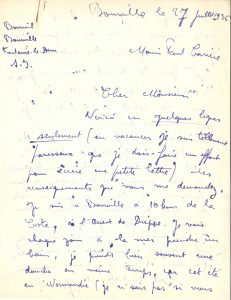 Bourville le 27 juillet 1936
Bourville
Fontaine-le-Dun
S. I.
Monsieur Paul Carrière
Cher Monsieur
Voici en quelques lignes
seulement (en vacances je suis tellement
paresseux que je dois faire un effort
pour écrire une petite lettre) les
renseignements que vous me demandez.
Je suis à Bourville à 10 kms de la
côte, à l'Ouest de Dieppe. Je vais
chaque jour à la mer prendre un
bain, je prends bien souvent une
douche en même temps, car cet été
en Normandie (je ne sais pas si vous